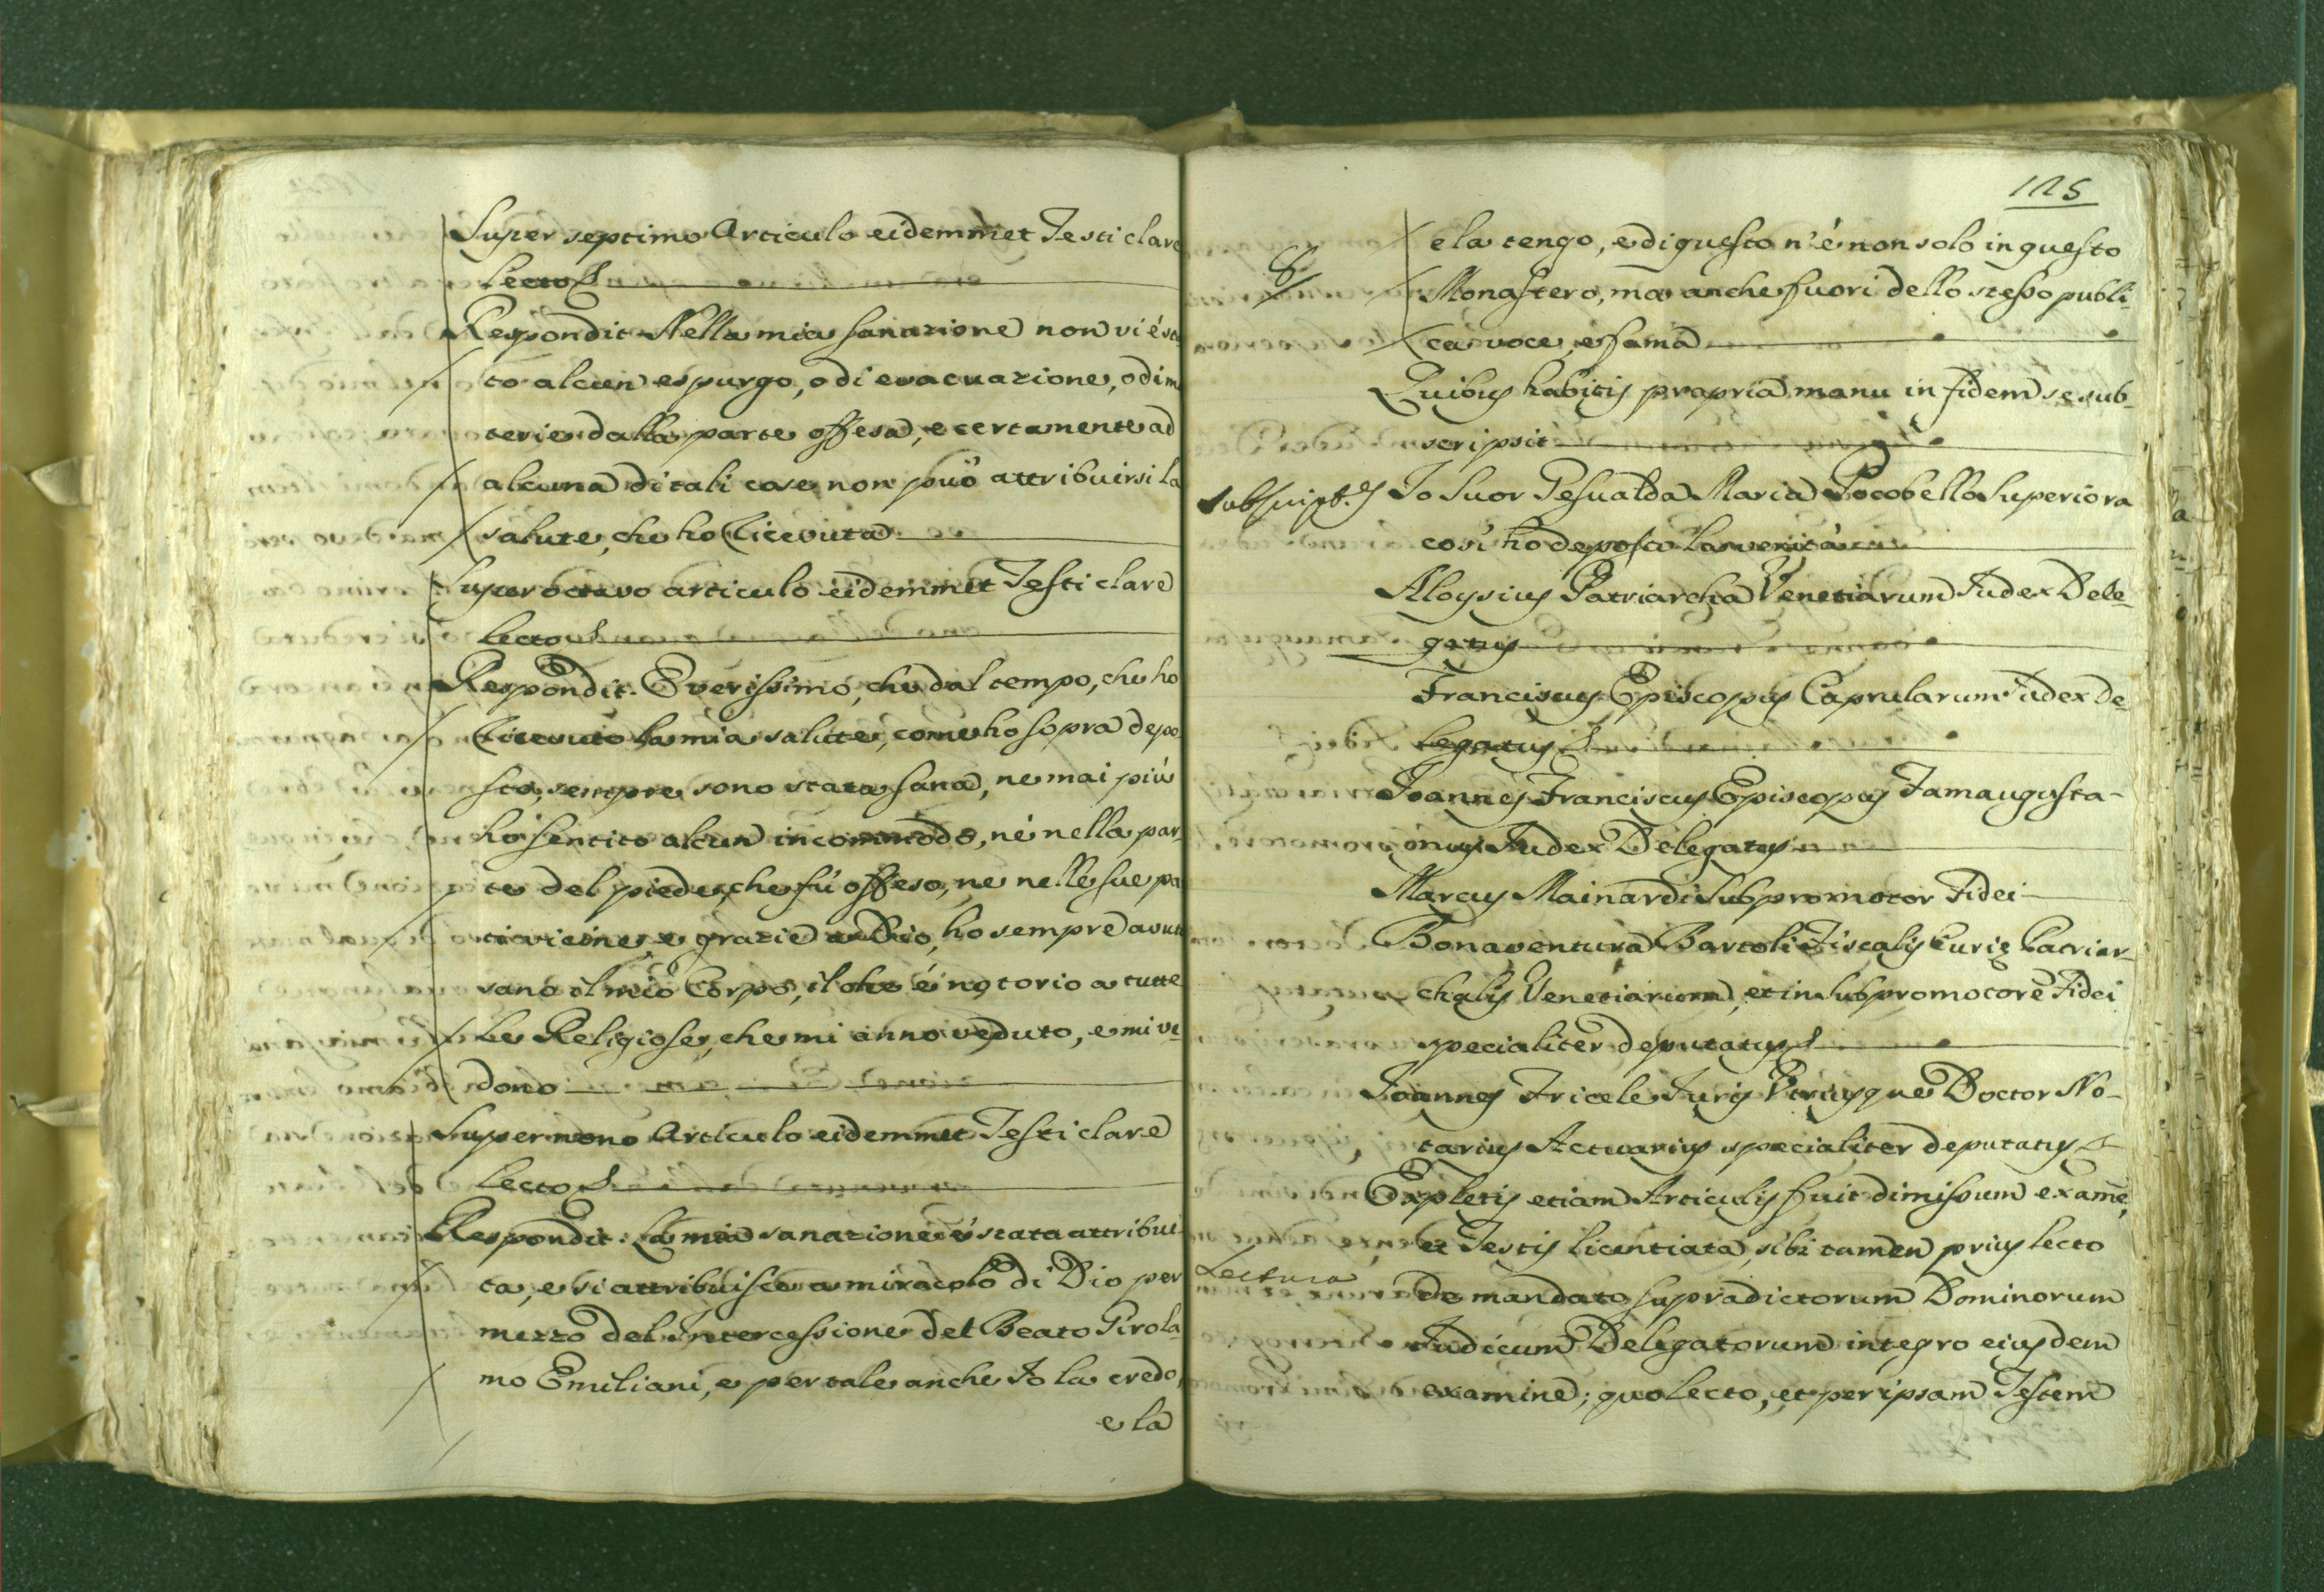 Super septimo Articulo eidemmet Testi clare
lecto &
Respondit. Nella mia sanazione non vi é sta
to alcun espurgo, o di evacuazione, o di ma
terie dalla parte offesa, e certamente ad
alcuna di tali cose non può attribuirsi la
salute, che ho ricevuta
Super octavo articulo eidemmet Testi clare
lecto &
Respondit. È verissimo, che dal tempo, che ho
ricevuto la mia salute, come ho sopra depo
sto, sempre sono stata sana, ne mai più
ho sentito alcun incommodo, né nella par-
te del piede, che fú offeso, ne nelle sue par
ti vicine, e grazie a Dio, ho sempre avuto
sano il mio Corpo, il che é notorio a tutte
le Religiose, che mi anno veduto, e mi ve-
dono
Super nono Articulo eidemmet Testi clare
lecto &
Respondit. La mia sanazione é stata attribui-
ta, e si attribuisce a miracolo di Dio per
mezzo del Intercessione del Beato Girola-
mo Emiliani, e per tale anche Io la credo,
e la
125
e la tengo, e di questo n'é non solo in questo
Monastero, ma anche fuori dello stesso publi-
ca voce, e fama
Quibus habitis propria manu in fidem se sub-
scripsit
subscript.
Io Suor Gesualda Maria Pocobello Superiora
cosí ho deposto la verità
Aloysius Patriarcha Venetiarum Iudex Dele-
gatus
Franciscus Episcopus Caprularum Iudex De-
legatus &
Joannes Franciscus Episcopus Famaugusta-
nus Iudex Delegatus
Marcus Mainardi Subpromotor Fidei
Bonaventura Bartoli Fiscalis Curię Patriar-
chalis Venetiarum, et in Subpromotore Fidei
specialiter deputatus &
Joannes Fricele Juris Utriusque Doctor No-
tarius Actuarius specialiter deputatus &
Expletis etiam Articulis fuit dimissum examē,
et Testis licentiata, sibi tamen prius lecto
Lectura
de mandato supradictorum Dominorum
Judicum Delegatorum integro eiusdem
examine; quo lecto, et per ipsam Testem